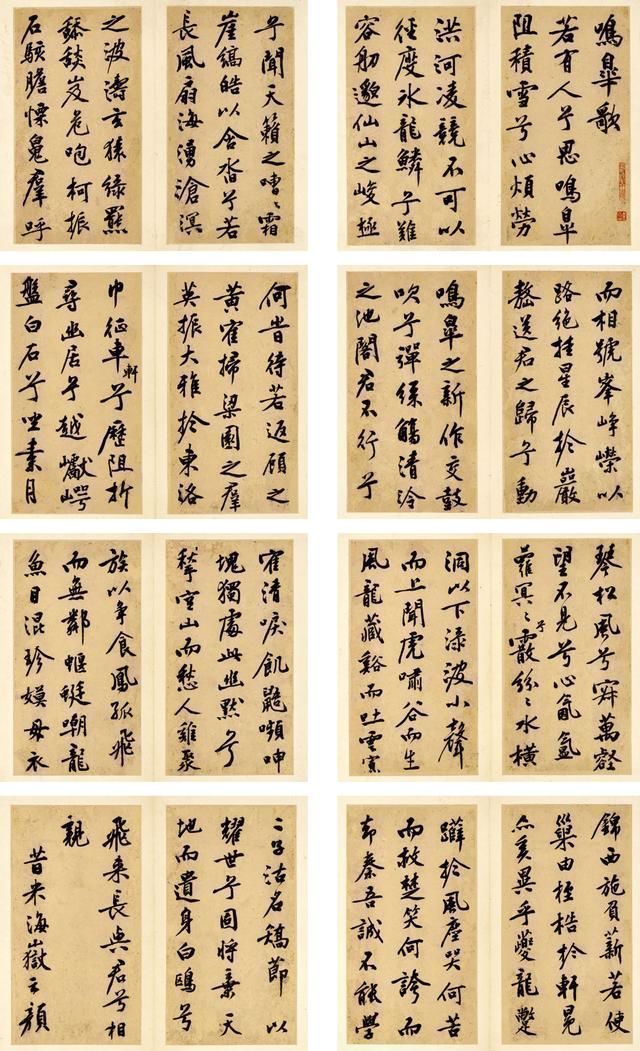 鳴皋歌
若有人兮思鳴皋
阻積雪兮心煩勞
洪河凌競不可以
徑度冰龍鱗兮難
容舠邈仙山之峻極
兮聞天籟之嘈〻霜
崖縞皓以合沓兮若
長風扇海湧滄溟
之波濤玄猿綠羆
舔舕岌危咆柯振
石駭膽慄魄羣呼
而相號峯崢嶸以
路絕挂星辰於巖
嶅送君之歸兮動
鳴皋之新作交鼓
吹兮彈絲觴清泠
之池閣君不行兮
何昔待若返顧之
黃鶴掃梁園之羣
英振大雅於東洛
巾征車軒兮歷阻折
尋幽居兮越巘崿
盤白石兮坐素月
琴松風兮寂萬壑
望不見兮心氤氳
蘿冥〻兮霰紛〻水橫
洞以下淥波小聲
而上聞虎嘯谷而生
風龍藏谿而吐雲寡
鶴清唳飢鼯嚬呻
塊獨處此幽默兮
愀空山而愁人雞聚
族以爭食鳳孤飛
而無鄰蝘蜓嘲龍
魚目混珍嫫母衣
錦西施負薪若使
巢由桎梏於軒冕
亦奚異乎夔龍蹩
躠於風塵哭何苦
而救楚笑何誇而
却秦吾誠不能學
二子沽名矯節以
耀世兮固將棄天
地而遺身白鷗兮
飛來長與君兮相
親
昔米海嶽云顏